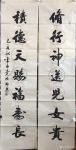 脩行神送兒女貴
積德天賜福壽長